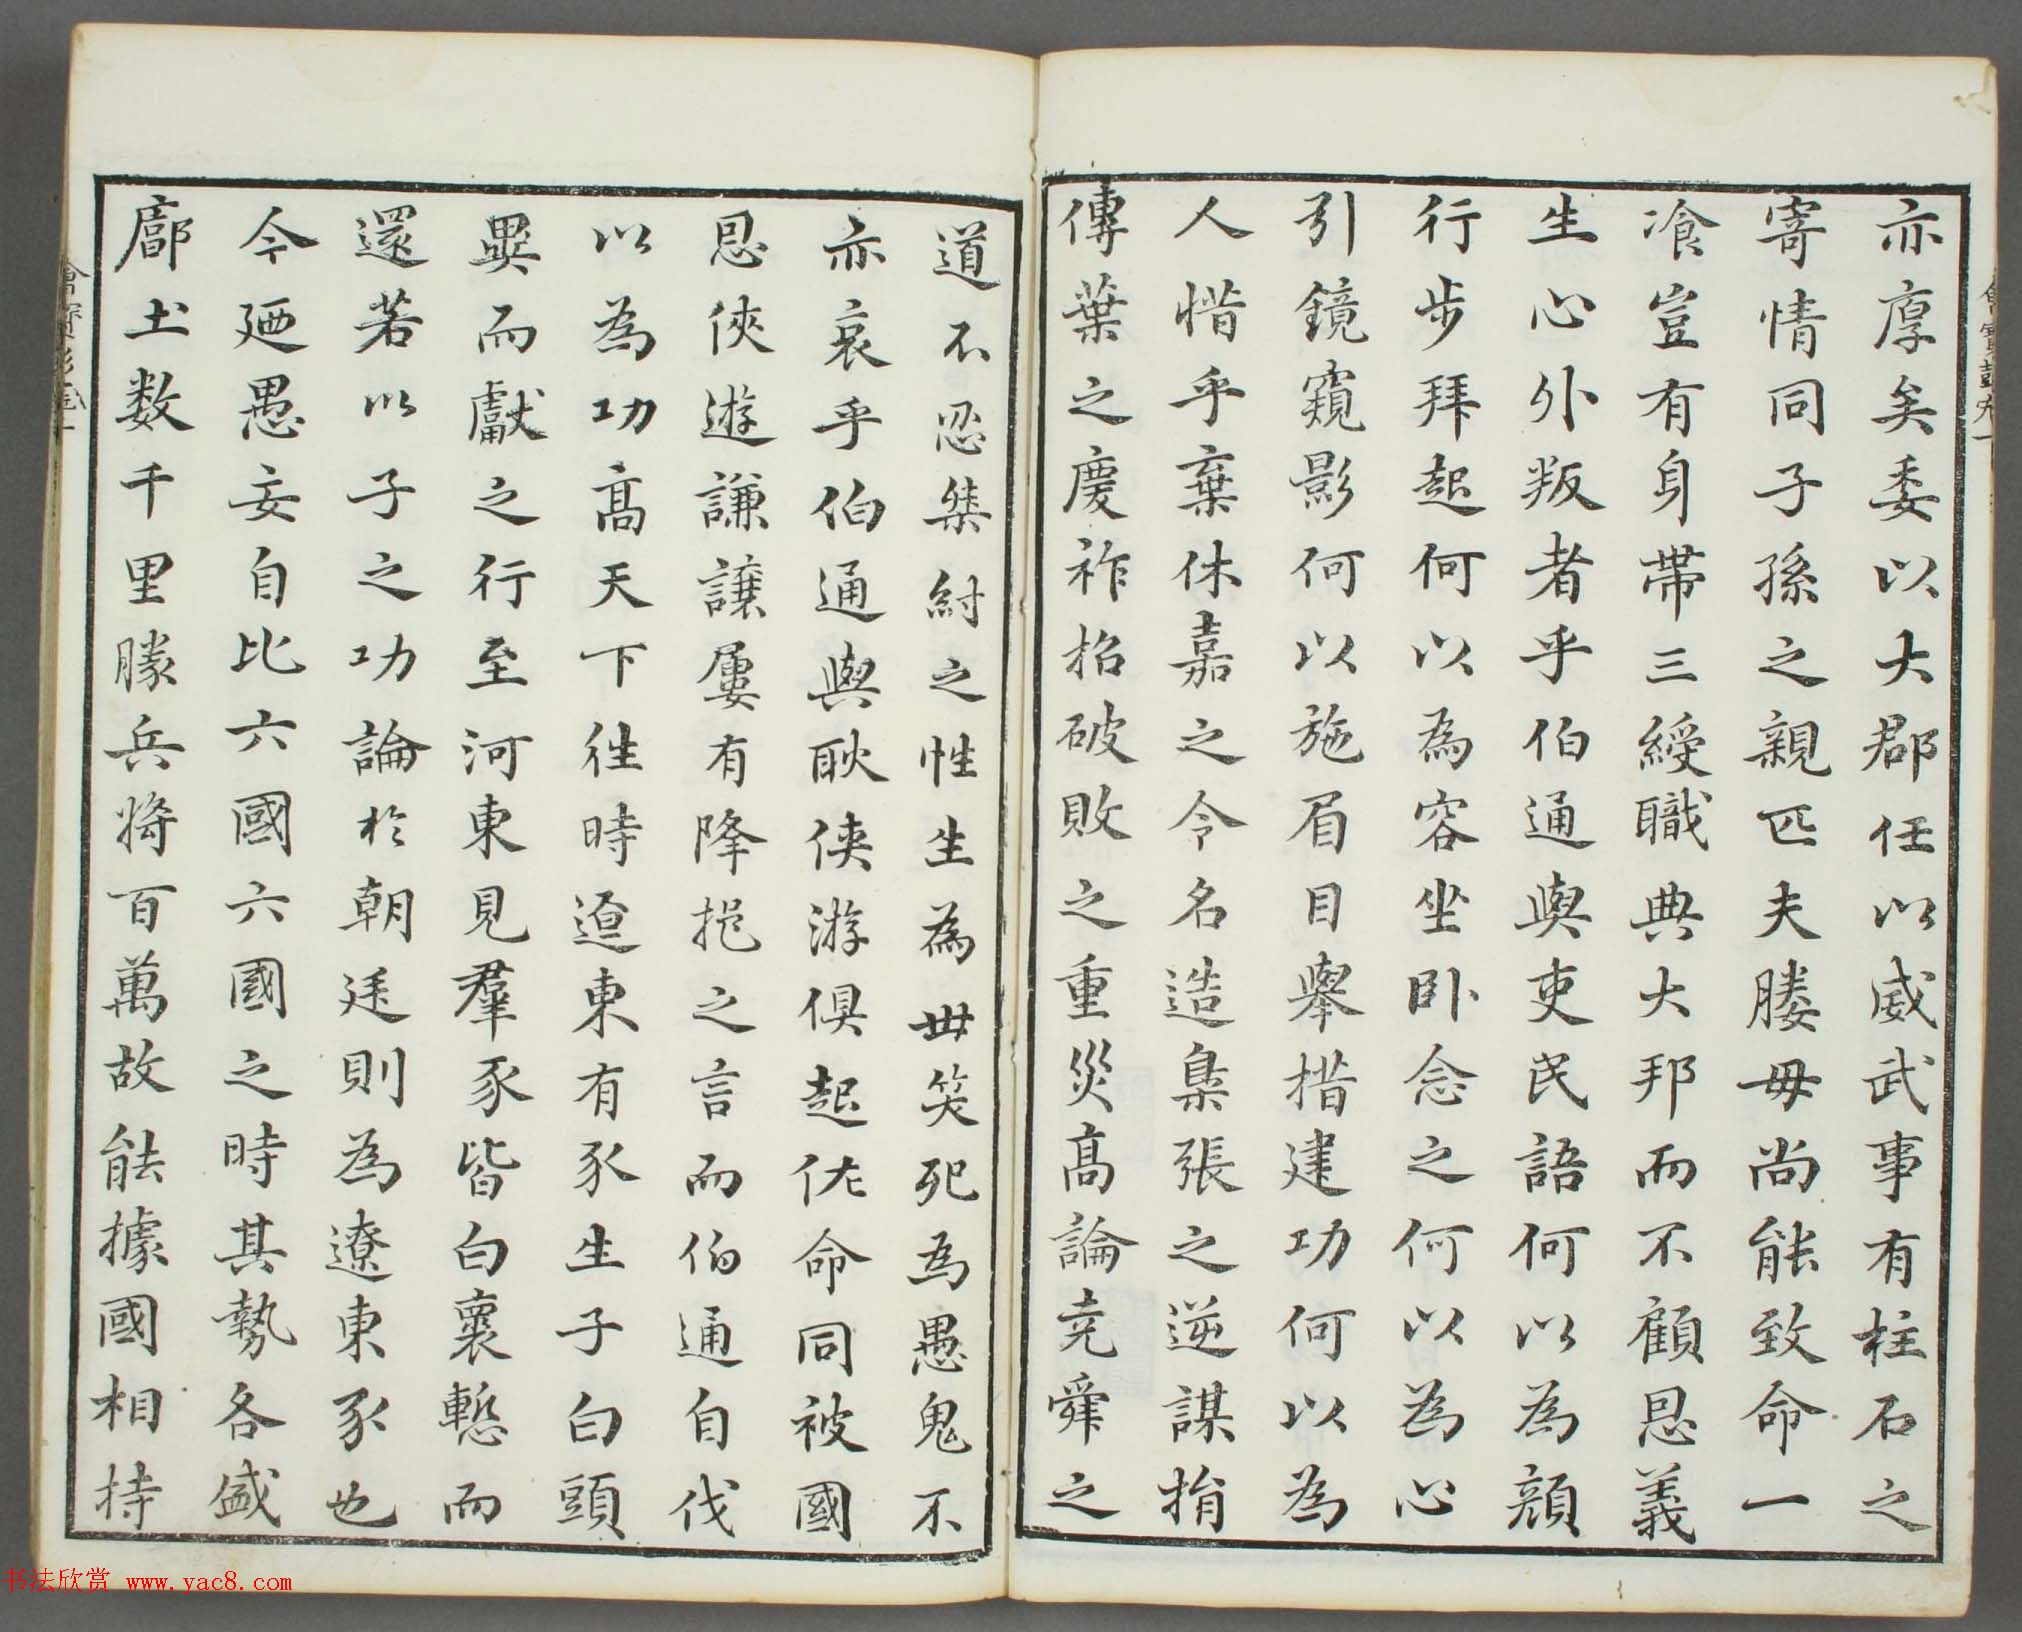 亦厚矣委以大郡任以威武事有柱石之
寄情同子孫之親匹夫媵母尚能致命一
飡豈有身帶三綬職典大邦而不顧恩義
生心外叛者乎伯通與吏民語何以為顔
行步拜起何以為容坐卧念之何以為心
引鏡窺影何以施眉目舉措建功何以為
人惜乎棄休嘉之令名造梟張之逆謀捐
傳葉之慶祚招破敗之重災高論堯舜之
道不忍桀紂之性生為世笑死為愚鬼不
亦哀乎伯通與耿俠游俱起佐命同被國
恩俠遊謙讓屢有降挹之言而伯通自伐
以為功高天下往時遼東有豕生子白頭
異而獻之行至河東見羣豕皆白褱慙而
還若以子之功論於朝廷則為遼東豕也
今廼愚妄自比六國六國之時其勢各盛
廓土数千里勝兵將百萬故能據國相持
书法欣赏 www.yac8.com